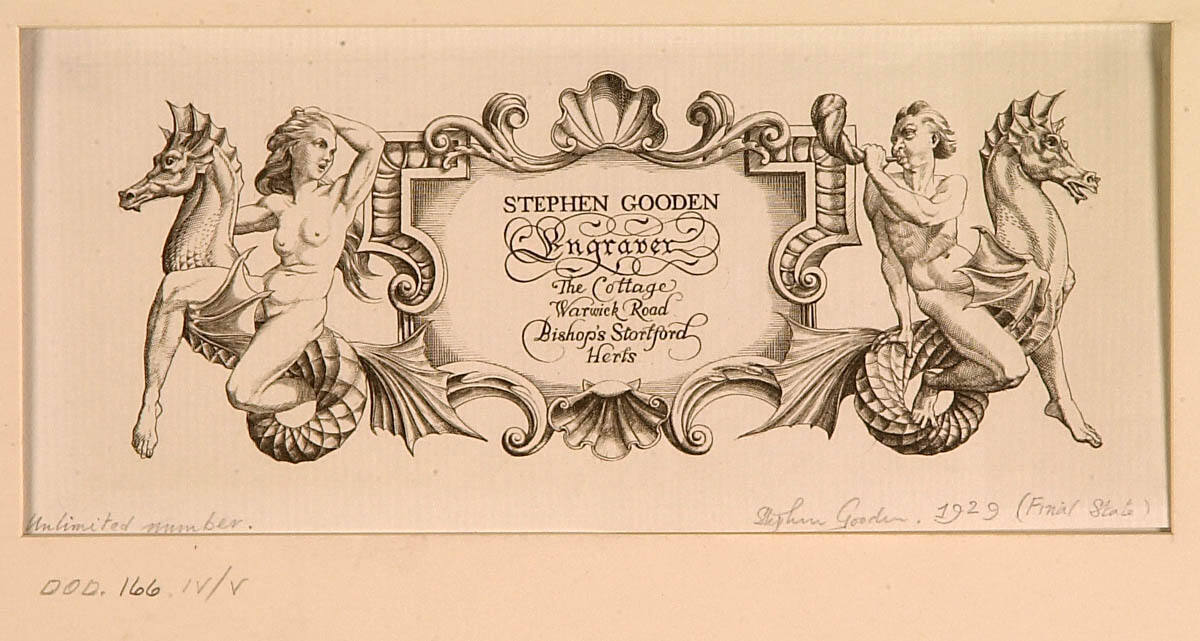 STEPHEN GOODEN
Engraver
The Cottage
Warwick Road
Bishop's Stortford
Herts
Unlimited number.
Stephen Gooden. 1929 (Final State)
DOD. 166. IV/V